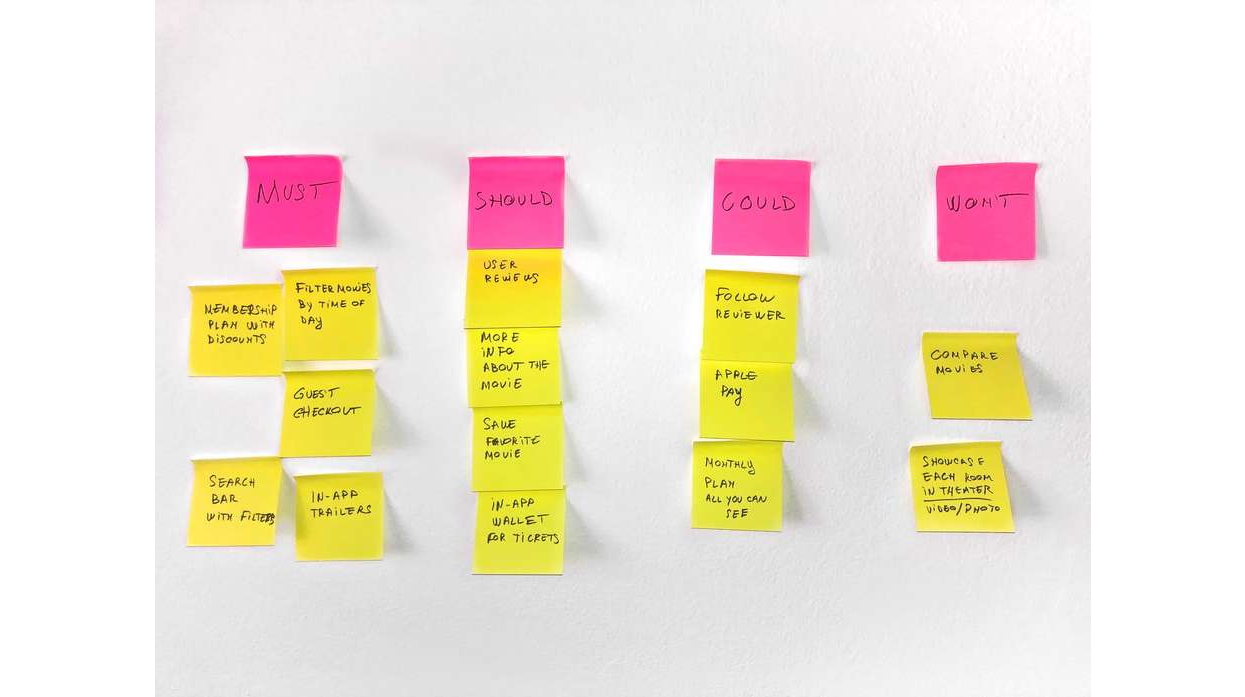 MUST
MEMBERSHIP
PLAN WITH
DISCOUNTS
FILTER MOVIES
BY TIME OF
DAY
GUEST
CHECKOUT
SEARCH
BAR
WITH FILTERS
IN-APP
TRAILERS
SHOULD
USER
REVIEWS
MORE
INFO
ABOUT THE
MOVIE
SAVE
FAVORITE
MOVIE
IN-APP
WALLET
FOR TICKETS
COULD
FOLLOW
REVIEWER
APPLE
PAY
MONTHLY
PLAN
ALL YOU CAN
SEE
WON'T
COMPARE
MOVIES
SHOWCASE
EACH ROOM
IN THEATER
VIDEO/PHOTO